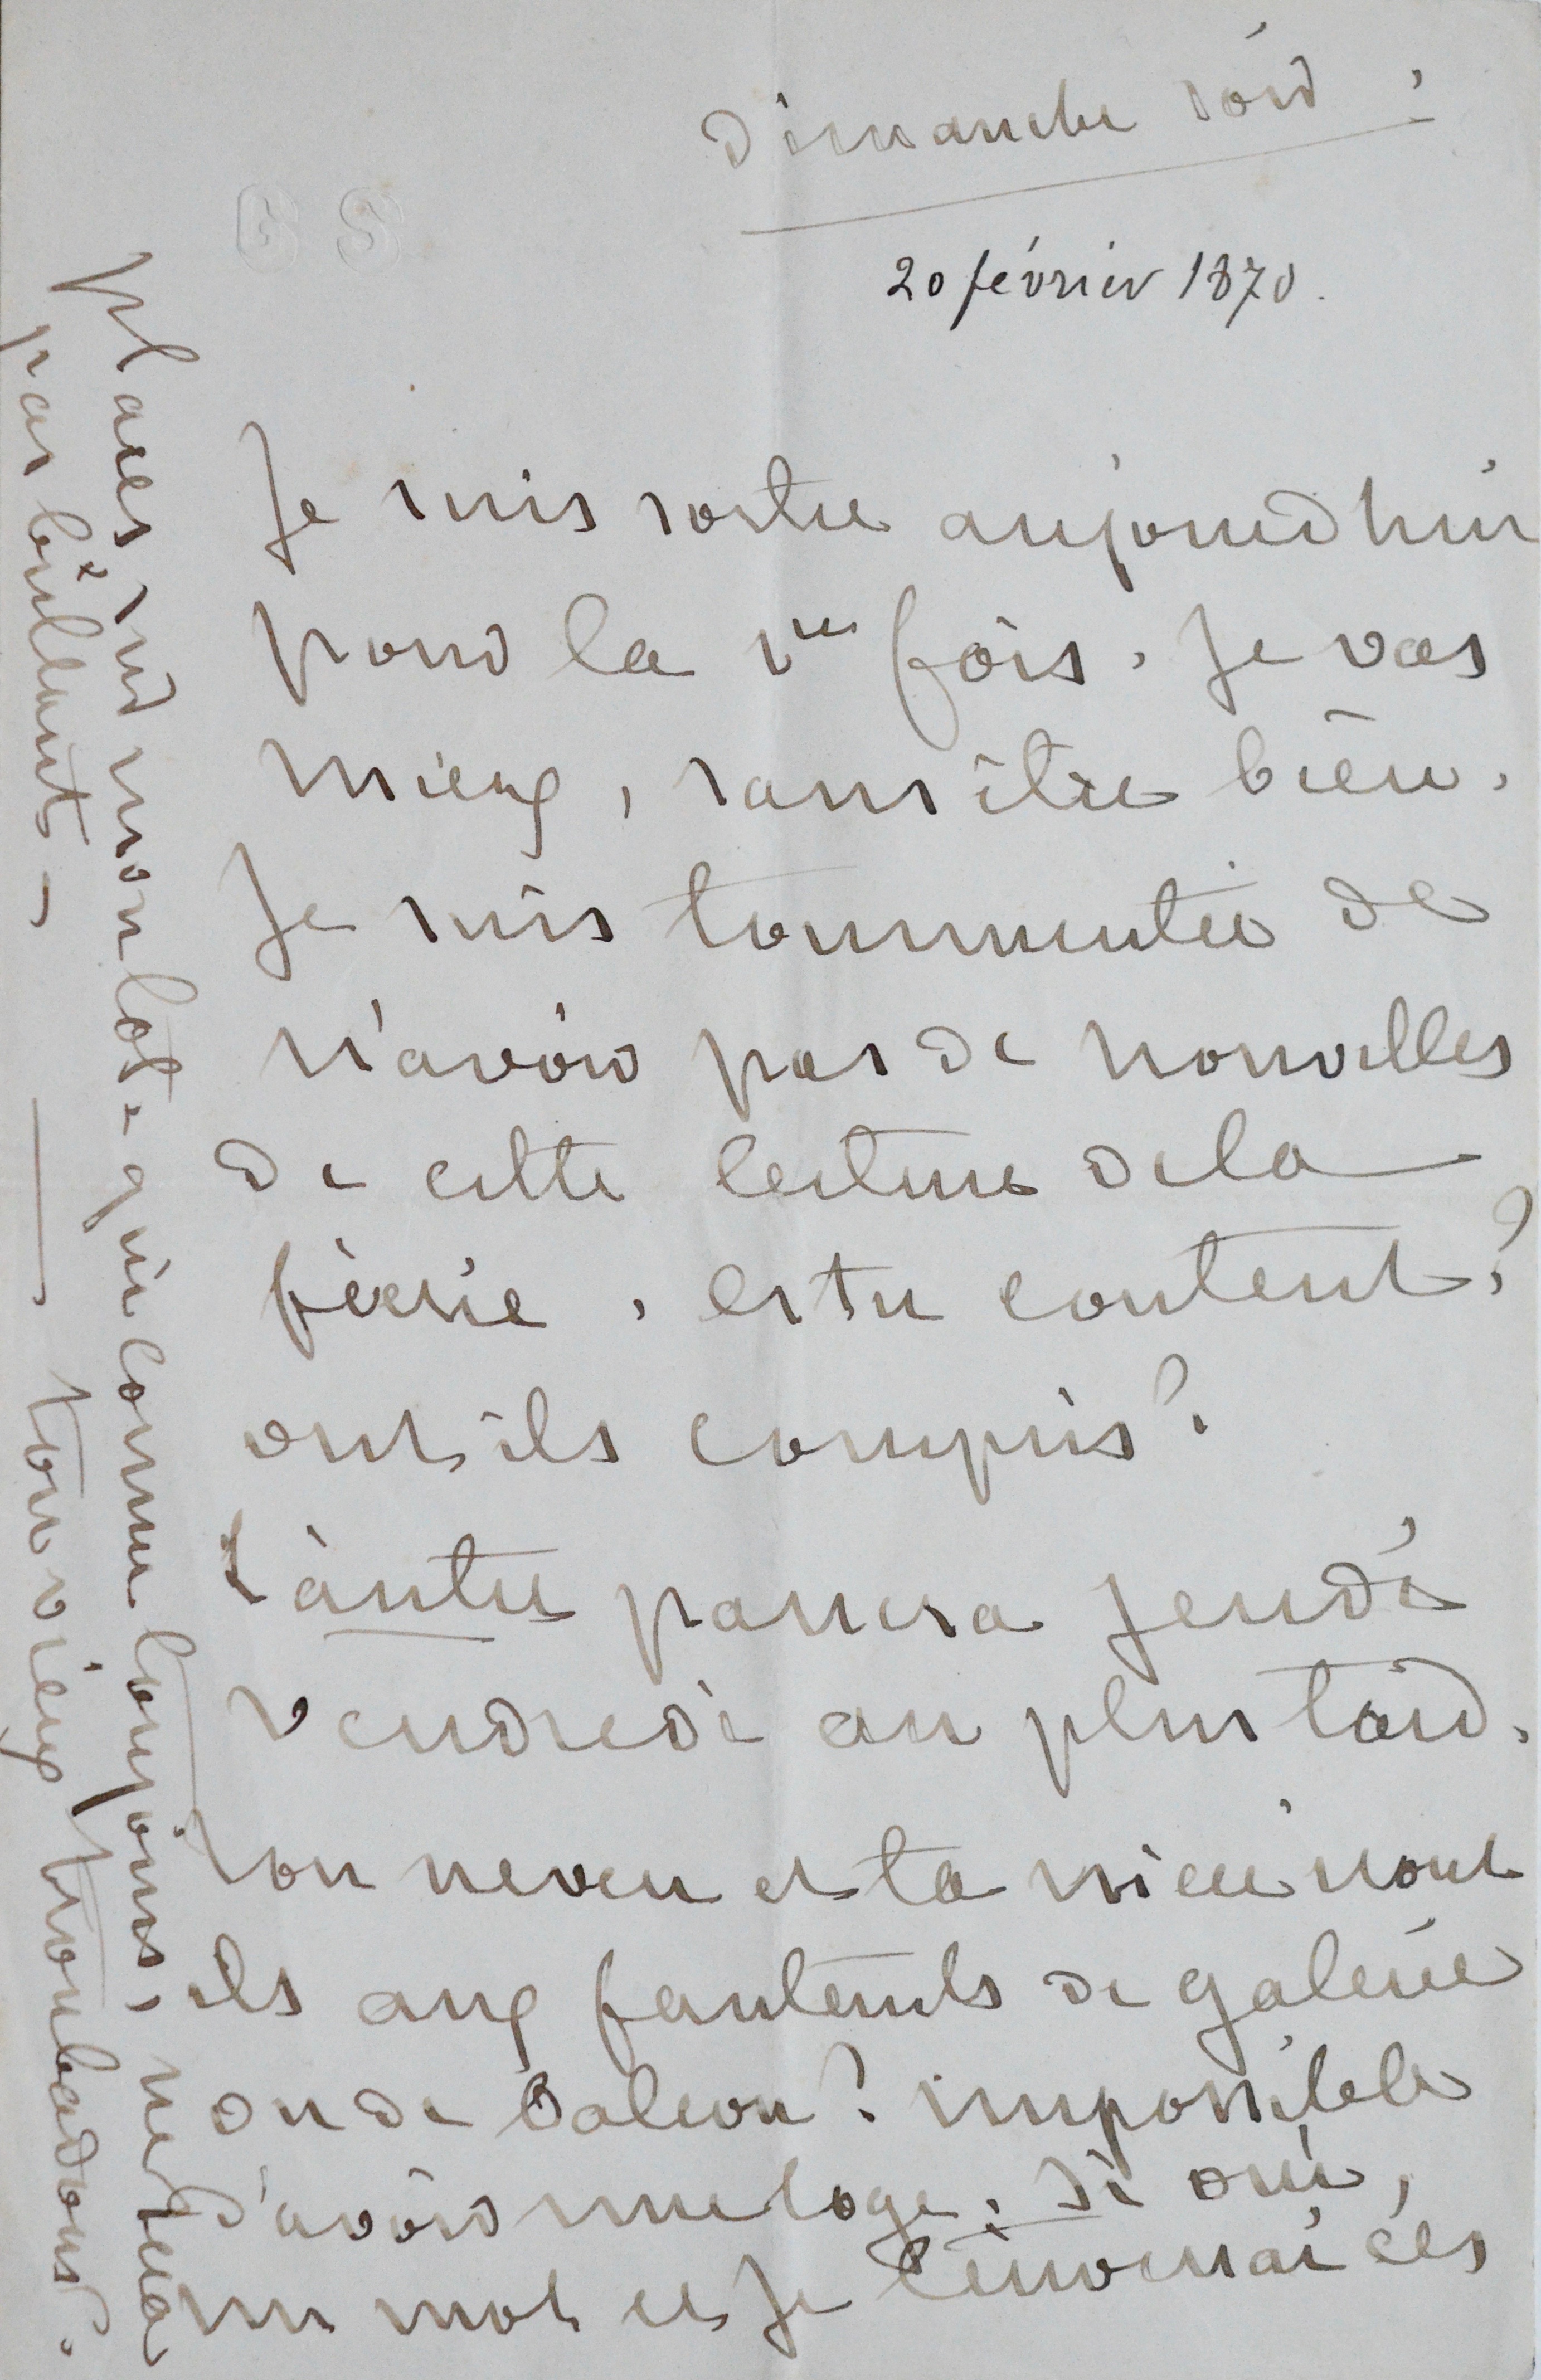 Dimanche soir
20 février 1870.
G S
Je suis sortie aujourdhui
pour la 1re fois. Je vas
mieux, sans être bien.
Je suis tourmentée de
n'avoir pas de nouvelles
de cette lecture de la
féerie. es tu content?
ont ils compris?
L'autre passera jeudi
vendredi au plus tard.
Ton neveu et ta nièce iront
ils aux fauteuils de galerie
ou de balcon? impossible
d'avoir une loge. Si oui,
un mot et je t'enverrai ces
places sur mon lot - qui comme toujours, ne sera
pas brillant -
ton vieux troubadour.